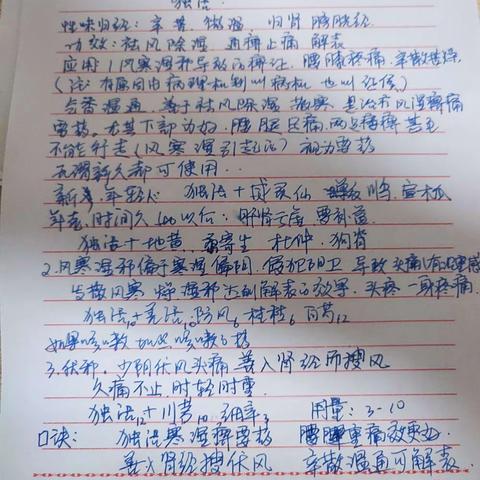 独活
性味归经：辛苦、微温 归肾膀胱经
功效：祛风除湿 通痹止痛 解表
应用1风寒湿邪导致的痹证、腰膝疼痛，辛散苦燥，
（注：有原因由病理机制叫病机 也叫证候）
辛香温通，善于祛风除湿 散寒，是治疗风湿痹痛
要药。尤其下部为好，腰腿足痛，两足痿痹甚至
不能行走（风寒湿引起的）视为要药
无论新久都可使用..
新 年轻人 独活+威灵仙 川乌，宣木瓜
年老，时间久 以后：肝肾亏虚 要补益
独活+地黄 桑寄生 杜仲 狗脊
2.风寒湿邪偏于寒湿偏阴，侵犯阳卫 导致头痛有湿重感
发散风寒 燥湿邪达到解表的效果，头疼一身疼痛
独活10+羌活10防风6桂枝6白芍12
如果咳嗽加
3.伏邪，少阴伏风头痛 善入肾经而搜风
久痛不止 时轻时重
独活12+川芎10细辛3 用量：3-10
口诀： 独活寒湿痹要药 腰膝重痛效更
善入肾经搜伏风 辛散温通可解表.